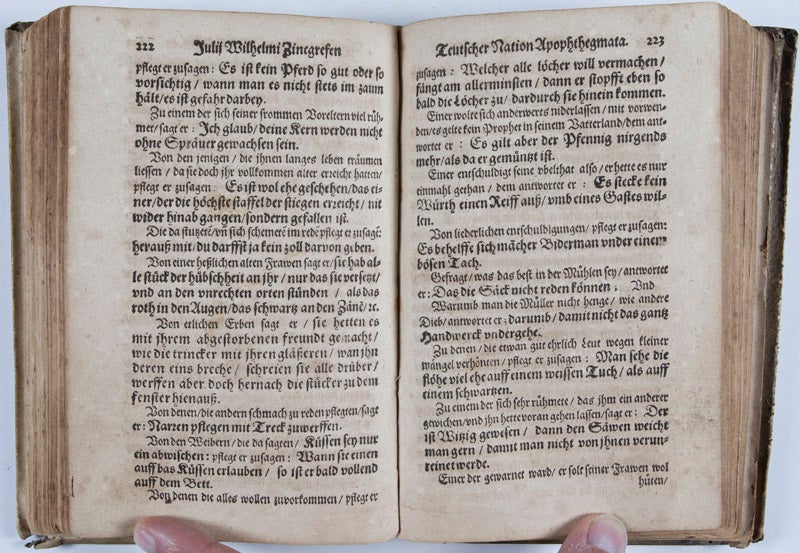 222 Julij Wilhelmi Zincgrefen
pflegt er zusagen: Es ist kein Pferd so gut oder so
vorsichtig / wann man es nicht stets im zaum
hält / es ist gefahr darbey.
Zu einem der sich seiner frommen Voreltern viel rüh-
met / sagt er: Ich glaub / deine Kern werden nicht
ohne Spräuer gewachsen sein.
Von den jenigen / die jhnen langes leben träumen
liessen / da sie doch jhr vollkommen alter erreicht hatten /
pflegt er zusagen: Es ist wol ehe geschehen / das ei-
ner / der die höchste staffel der stiegen erreicht / nit
wider hinab gangen / sondern gefallen ist.
Die da stutzetē / vñ sich schemetē im redē pflegt er zusagē:
herauß mit / du darffst ja kein zoll darvon geben.
Von einer heßlichen alten Frawen sagt er / sie hab al-
le stück der hübschheit an jhr / nur das sie versetzt /
vnd an den vnrechten orten stünden / als das
roth in den Augen / das schwartz an den Zänē / ꝛc.
Von etlichen Erben sagt er / sie hetten es
mit jhrem abgestorbenen freundt gemacht /
wie die trincker mit jhren gläseren / wan jhn
deren eins breche / schreien sie alle drüber /
werffen aber doch hernach die stücker zu dem
fenster hienauß.
Von denen / die andern schmach zu reden pflegten / sagt
er: Narren pflegen mit Treck zuwerffen.
Von den Weibern / die da sagten / Küssen sey nur
ein abwischen: pflegt er zusagen: Wann sie einen
auff das Küssen erlauben / so ist er bald vollend
auff dem Bett.
Von denen die alles wollen zuvorkommen / pflegt er
Teutscher Nation Apophthegmata. 223
zusagen: Welcher alle löcher will vermachen /
fängt am allerminsten / dann er stopfft eben so
bald die Löcher zu / dardurch sie hinein kommen.
Einer wolte sich anderwerts niderlassen / mit vorwen-
den / es gelte kein Prophet in seinem Vatterland / dem ant-
wortet er: Es gilt aber der Pfennig nirgends
mehr / als da er gemüntzt ist.
Einer entschuldigt seine vbelthat also / er hette es nur
einmahl gethan / dem antwortet er: Es stecke kein
Würth einen Reiff auß / vmb eines Gastes wil-
len.
Von liederlichen entschuldigungen / pflegt er zusagen:
Es behelffe sich mācher Biderman vnder einem
bösen Tach.
Gefragt / was das best in der Mühlen sey / antwortet
er: Das die Säck nicht reden können; Vnd
Warumb man die Müller nicht henge / wie andere
Dieb / antwortet er: darumb / damit nicht das gantz
Handwerck vndergehe.
Zu denen / die etwan gut ehrlich Leut wegen kleiner
mängel verhönten / pflegt er zusagen: Man sehe die
flöhe viel ehe auff einem weissen Tuch / als auff
einem schwartzen.
Zu einem der sich sehr rühmete / das jhm ein anderer
gewichen / vnd jhn hette voran gehen lassen / sagt er: Der
ist Witzig gewesen / dann den Säwen weicht
man gern / damit man nicht von jhnen verun-
reinet werde.
Einer der gewarnet ward / er solt seiner Frawen wol
hüten /